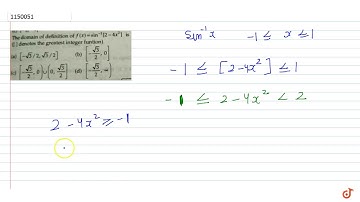 1150051
The domain of definition of f(x) = sin⁻¹[2 - 4x²] is
([ ] denotes the greatest integer function)
(a) [-√3/2, √3/2] (b) [-√3/2, 0]
(c) [-√3/2, 0) ∪ (0, √3/2] (d) [-√3/2, ∞)
Sin⁻¹ x -1 ≤ x ≤ 1
-1 ≤ [2-4x²] ≤ 1
-1 ≤ 2-4x² < 2
2 - 4x² ≥ -1